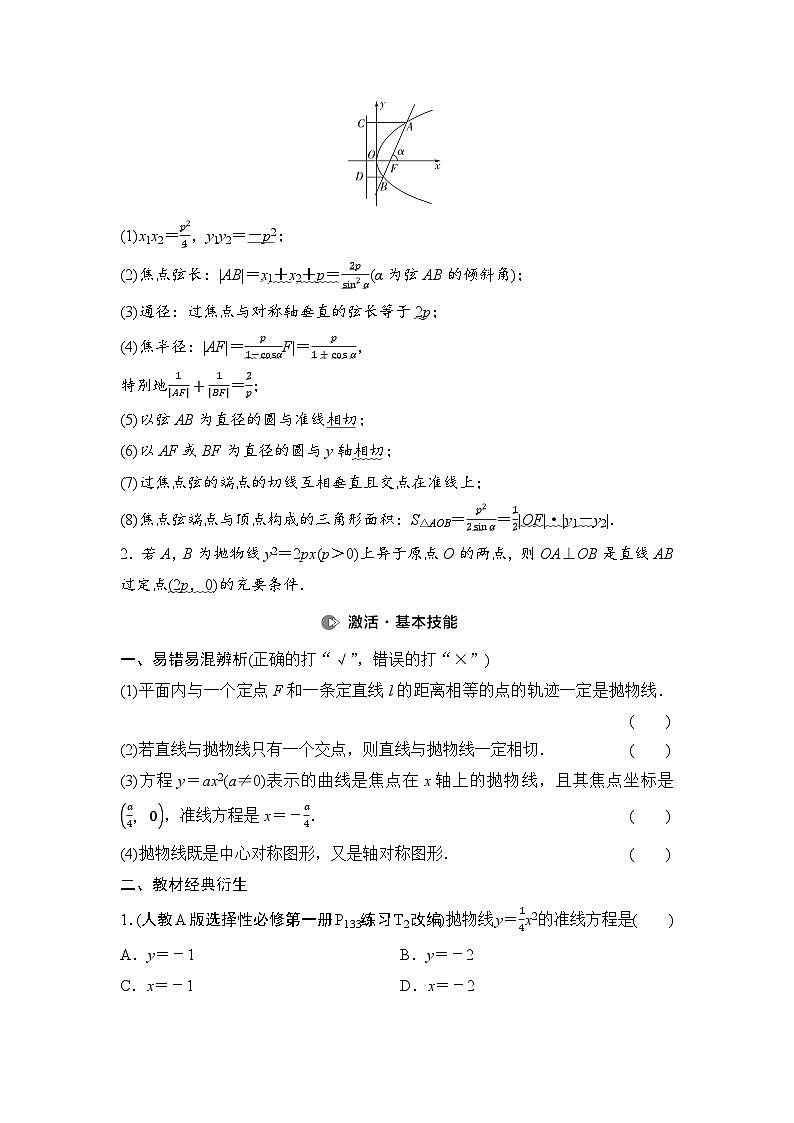 y
C
A
O
α
F
x
D
B
(1)x₁x₂＝p²/4，y₁y₂＝－p²；
(2)焦点弦长：|AB|＝x₁＋x₂＋p＝2p/sin²α(α为弦AB的倾斜角)；
(3)通径：过焦点与对称轴垂直的弦长等于2p；
(4)焦半径：|AF|＝p/1－cosαF|＝p/1＋cosα，
特别地1/|AF|＋1/|BF|＝2/p；
(5)以弦AB为直径的圆与准线相切；
(6)以AF或BF为直径的圆与y轴相切；
(7)过焦点弦的端点的切线互相垂直且交点在准线上；
(8)焦点弦端点与顶点构成的三角形面积：S△AOB＝p²/2sinα＝1/2|OF|·|y₁－y₂|.
2．若A，B为抛物线y²＝2px(p＞0)上异于原点O的两点，则OA⊥OB是直线AB
过定点(2p，0)的充要条件．
激活·基本技能
一、易错易混辨析(正确的打“√”，错误的打“×”)
(1)平面内与一个定点F和一条定直线l的距离相等的点的轨迹一定是抛物线．
(　　)
(2)若直线与抛物线只有一个交点，则直线与抛物线一定相切． (　　)
(3)方程y＝ax²(a≠0)表示的曲线是焦点在x轴上的抛物线，且其焦点坐标是
(a/4，0)，准线方程是x＝－a/4. (　　)
(4)抛物线既是中心对称图形，又是轴对称图形． (　　)
二、教材经典衍生
1.(人教A版选择性必修第一册P₁₃₃练习T₂改编)抛物线y＝1/4x²的准线方程是(　　)
A．y＝－1 B．y＝－2
C．x＝－1 D．x＝－2